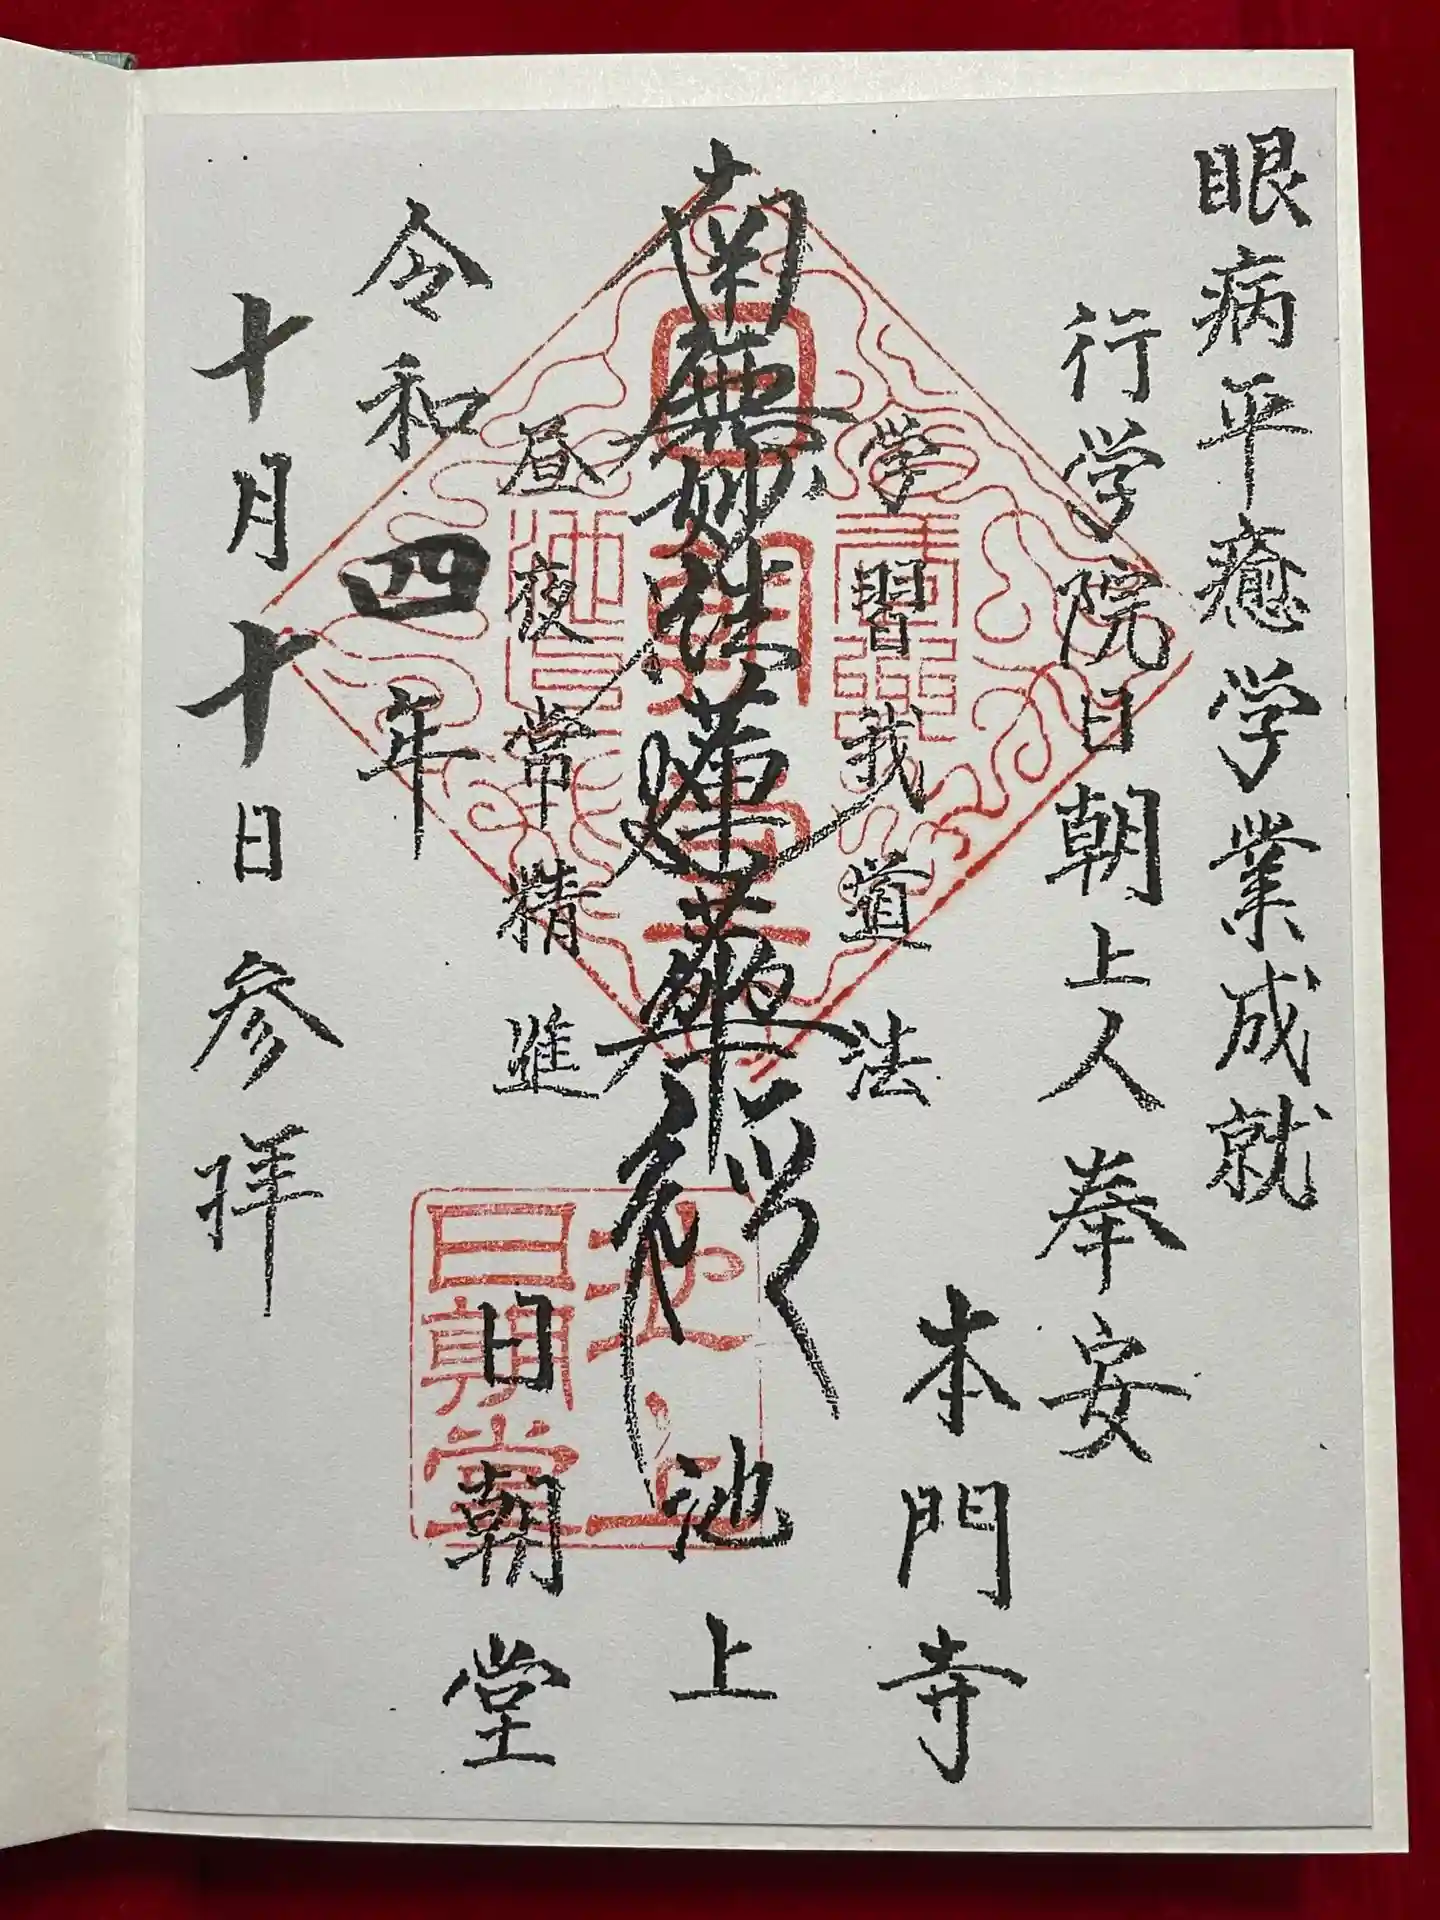 眼病平癒学業成就
行学院日朝上人奉安
本門寺
学習我道法
南無妙法蓮華経
池上
昼夜常精進
日朝堂
令和四年
十月十日参拝
池上
日朝堂